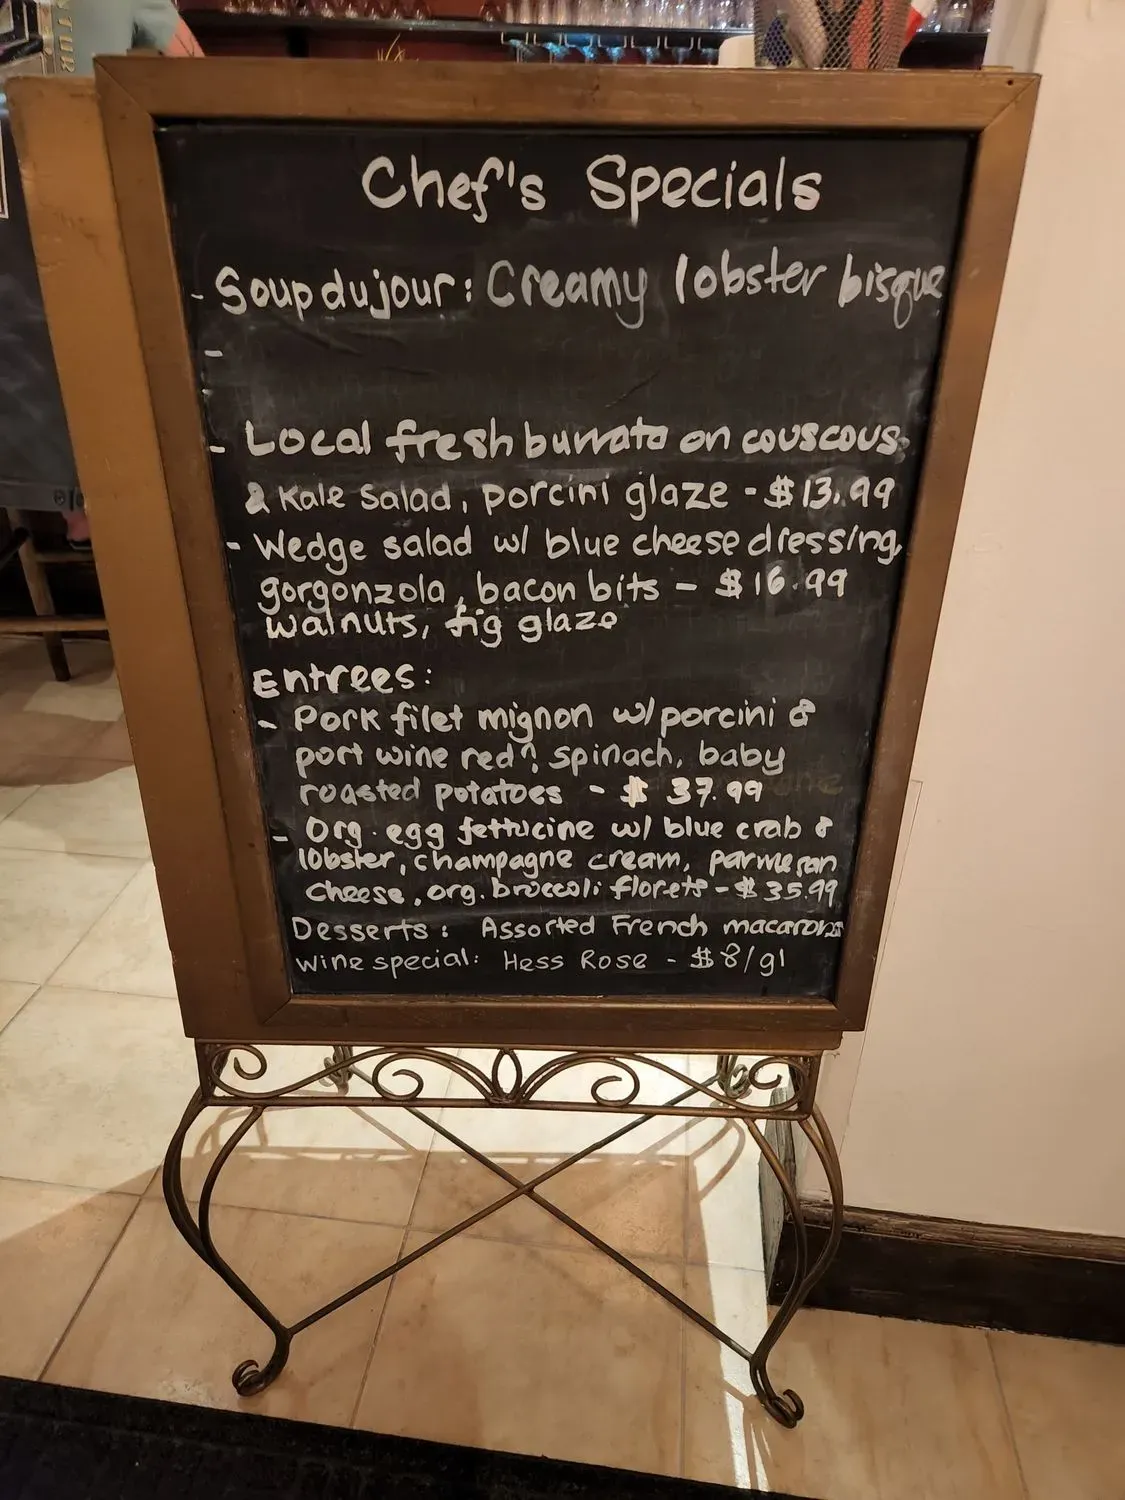 Chef's Specials
- Soup du jour: Creamy lobster bisque
-
- Local fresh burrata on couscous
& Kale Salad, porcini glaze - $13.99
- Wedge salad w/ blue cheese dressing,
gorgonzola, bacon bits - $16.99
walnuts, fig glaze
Entrees:
- Pork filet mignon w/ porcini &
port wine redn, spinach, baby
roasted potatoes - $37.99
- Org. egg fettucine w/ blue crab &
lobster, champagne cream, parmesan
cheese, org. broccoli florets - $35.99
Desserts: Assorted French macarons
Wine special: Hess Rose - $8/gl